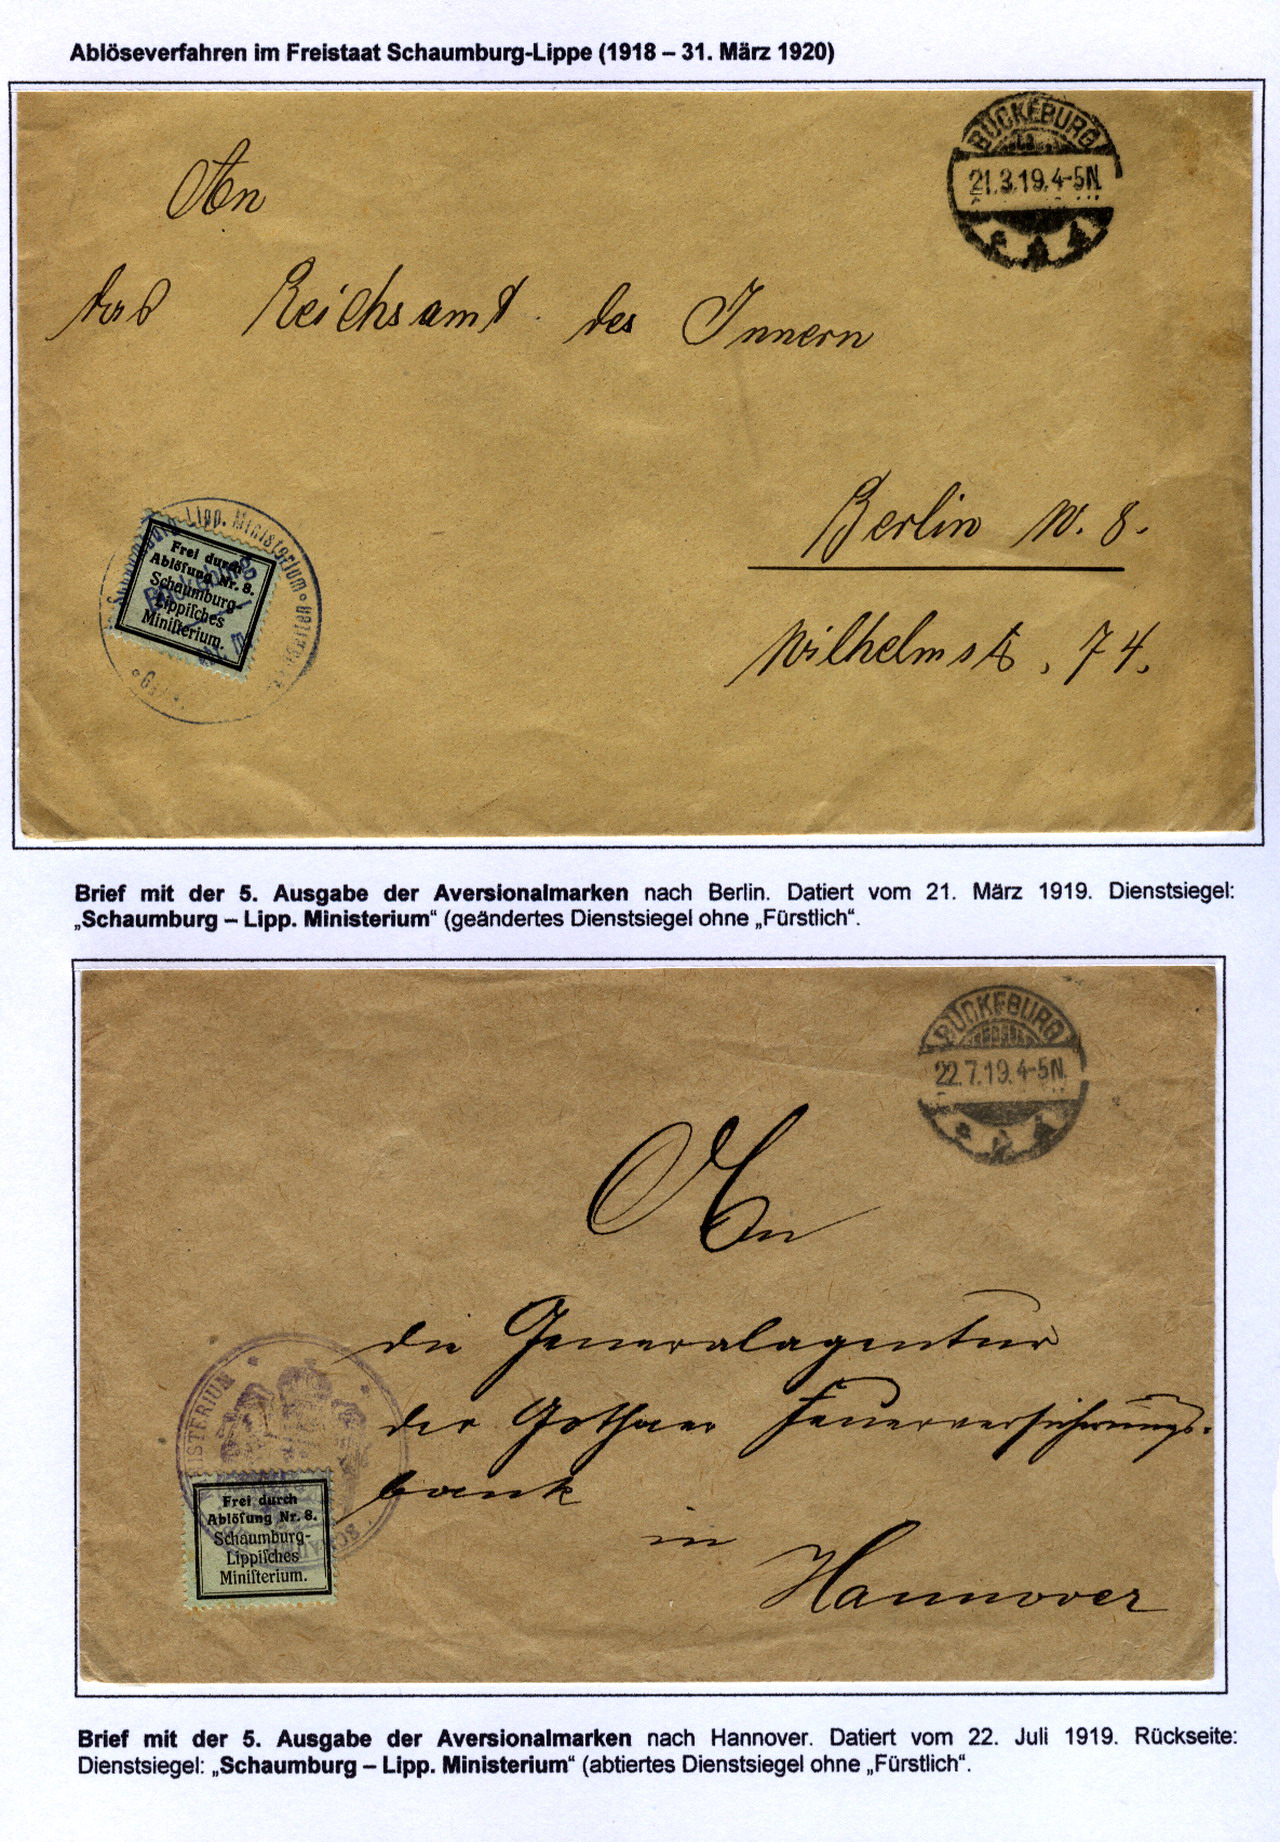 Ablöseverfahren im Freistaat Schaumburg-Lippe (1918 – 31. März 1920)
BÜCKEBURG
21.3.19.4-5N.
An
das Reichsamt des Innern
Berlin W. 8.
Wilhelmstr. 74.
Schaumburg-Lipp. Ministerium
Frei durch
Ablösung Nr. 8.
Schaumburg-
Lippisches
Ministerium.
Brief mit der 5. Ausgabe der Aversionalmarken nach Berlin. Datiert vom 21. März 1919. Dienstsiegel:
„Schaumburg – Lipp. Ministerium“ (geändertes Dienstsiegel ohne „Fürstlich“.
BÜCKEBURG
22.7.19.4-5N.
An
die Generalagentur
der Gothaer Feuerversicherungs-
bank
in
Hannover
Frei durch
Ablösung Nr. 8.
Schaumburg-
Lippisches
Ministerium.
Brief mit der 5. Ausgabe der Aversionalmarken nach Hannover. Datiert vom 22. Juli 1919. Rückseite:
Dienstsiegel: „Schaumburg – Lipp. Ministerium“ (abtiertes Dienstsiegel ohne „Fürstlich“.